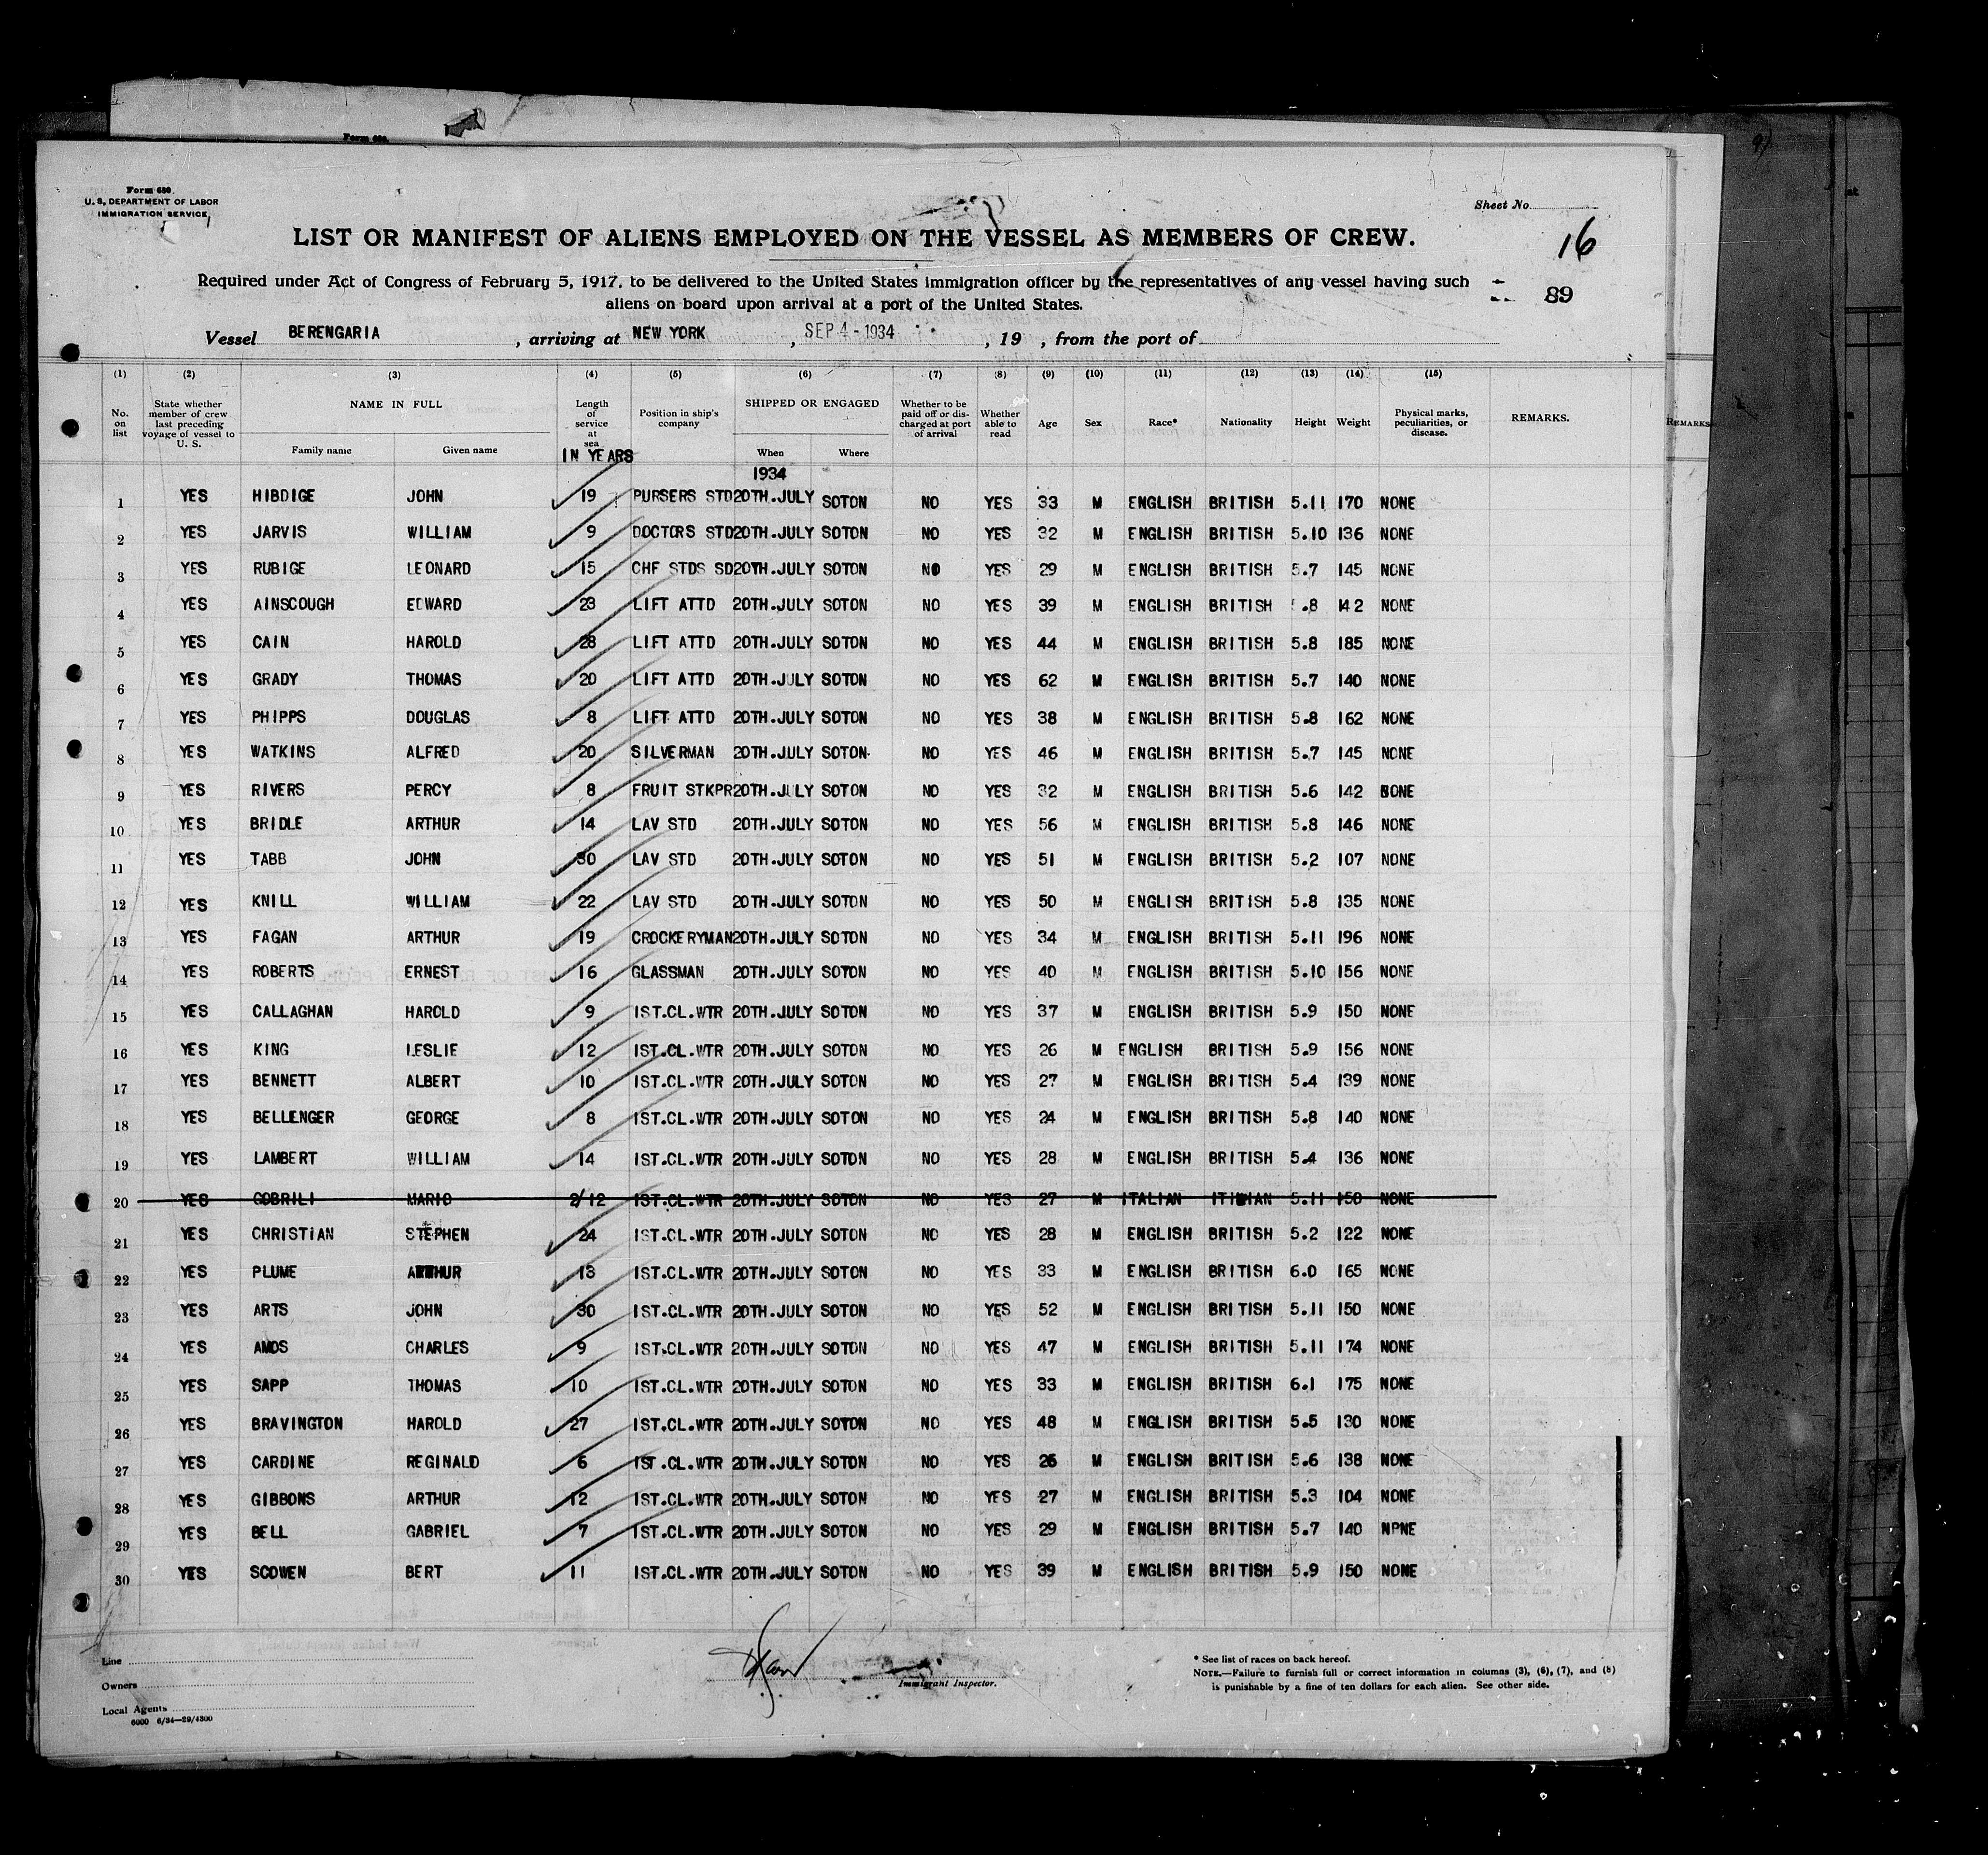 Form 680
U. S. DEPARTMENT OF LABOR
IMMIGRATION SERVICE
Sheet No.
16
LIST OR MANIFEST OF ALIENS EMPLOYED ON THE VESSEL AS MEMBERS OF CREW.
Required under Act of Congress of February 5, 1917, to be delivered to the United States immigration officer by the representatives of any vessel having such
aliens on board upon arrival at a port of the United States.
89
Vessel BERENGARIA, arriving at NEW YORK, SEP 4 - 1934, 19 , from the port of
(1) (2) (3) (4) (5) (6) (7) (8) (9) (10) (11) (12) (13) (14) (15)
No. on list State whether member of crew last preceding voyage of vessel to U. S. NAME IN FULL Family name Given name Length of service at sea IN YEARS Position in ship's company SHIPPED OR ENGAGED When Where Whether to be paid off or discharged at port of arrival Whether able to read Age Sex Race* Nationality Height Weight Physical marks, peculiarities, or disease. REMARKS. REMARKS.
1934
1 YES HIBDIGE JOHN 19 PURSERS STD 20TH.JULY SOTON NO YES 33 M ENGLISH BRITISH 5.11 170 NONE
2 YES JARVIS WILLIAM 9 DOCTORS STD 20TH.JULY SOTON NO YES 32 M ENGLISH BRITISH 5.10 136 NONE
3 YES RUBIGE LEONARD 15 CHF STDS SD 20TH.JULY SOTON NO YES 29 M ENGLISH BRITISH 5.7 145 NONE
4 YES AINSCOUGH EDWARD 23 LIFT ATTD 20TH.JULY SOTON NO YES 39 M ENGLISH BRITISH .8 142 NONE
5 YES CAIN HAROLD 28 LIFT ATTD 20TH.JULY SOTON NO YES 44 M ENGLISH BRITISH 5.8 185 NONE
6 YES GRADY THOMAS 20 LIFT ATTD 20TH.JULY SOTON NO YES 62 M ENGLISH BRITISH 5.7 140 NONE
7 YES PHIPPS DOUGLAS 8 LIFT ATTD 20TH.JULY SOTON NO YES 38 M ENGLISH BRITISH 5.8 162 NONE
8 YES WATKINS ALFRED 20 SILVERMAN 20TH.JULY SOTON NO YES 46 M ENGLISH BRITISH 5.7 145 NONE
9 YES RIVERS PERCY 8 FRUIT STKPR 20TH.JULY SOTON NO YES 32 M ENGLISH BRITISH 5.6 142 NONE
10 YES BRIDLE ARTHUR 14 LAV STD 20TH.JULY SOTON NO YES 56 M ENGLISH BRITISH 5.8 146 NONE
11 YES TABB JOHN 30 LAV STD 20TH.JULY SOTON NO YES 51 M ENGLISH BRITISH 5.2 107 NONE
12 YES KNILL WILLIAM 22 LAV STD 20TH.JULY SOTON NO YES 50 M ENGLISH BRITISH 5.8 135 NONE
13 YES FAGAN ARTHUR 19 CROCKERYMAN 20TH.JULY SOTON NO YES 34 M ENGLISH BRITISH 5.11 196 NONE
14 YES ROBERTS ERNEST 16 GLASSMAN 20TH.JULY SOTON NO YES 40 M ENGLISH BRITISH 5.10 156 NONE
15 YES CALLAGHAN HAROLD 9 IST.CL.WTR 20TH.JULY SOTON NO YES 37 M ENGLISH BRITISH 5.9 150 NONE
16 YES KING LESLIE 12 IST.CL.WTR 20TH.JULY SOTON NO YES 26 M ENGLISH BRITISH 5.9 156 NONE
17 YES BENNETT ALBERT 10 IST.CL.WTR 20TH.JULY SOTON NO YES 27 M ENGLISH BRITISH 5.4 139 NONE
18 YES BELLENGER GEORGE 8 IST.CL.WTR 20TH.JULY SOTON NO YES 24 M ENGLISH BRITISH 5.8 140 NONE
19 YES LAMBERT WILLIAM 14 IST.CL.WTR 20TH.JULY SOTON NO YES 28 M ENGLISH BRITISH 5.4 136 NONE
20 YES GOBRILI MARIO 2/12 IST.CL.WTR 20TH.JULY SOTON NO YES 27 M ITALIAN 5.11 150 NONE
21 YES CHRISTIAN STEPHEN 24 IST.CL.WTR 20TH.JULY SOTON NO YES 28 M ENGLISH BRITISH 5.2 122 NONE
22 YES PLUME ARTHUR 13 IST.CL.WTR 20TH.JULY SOTON NO YES 33 M ENGLISH BRITISH 6.0 165 NONE
23 YES ARTS JOHN 30 IST.CL.WTR 20TH.JULY SOTON NO YES 52 M ENGLISH BRITISH 5.11 150 NONE
24 YES AMOS CHARLES 9 IST.CL.WTR 20TH.JULY SOTON NO YES 47 M ENGLISH BRITISH 5.11 174 NONE
25 YES SAPP THOMAS 10 IST.CL.WTR 20TH.JULY SOTON NO YES 33 M ENGLISH BRITISH 6.1 175 NONE
26 YES BRAVINGTON HAROLD 27 IST.CL.WTR 20TH.JULY SOTON NO YES 48 M ENGLISH BRITISH 5.5 130 NONE
27 YES CARDINE REGINALD 6 IST.CL.WTR 20TH.JULY SOTON NO YES 26 M ENGLISH BRITISH 5.6 138 NONE
28 YES GIBBONS ARTHUR 12 IST.CL.WTR 20TH.JULY SOTON NO YES 27 M ENGLISH BRITISH 5.3 104 NONE
29 YES BELL GABRIEL 7 IST.CL.WTR 20TH.JULY SOTON NO YES 29 M ENGLISH BRITISH 5.7 140 NPNE
30 YES SCOWEN BERT 11 IST.CL.WTR 20TH.JULY SOTON NO YES 39 M ENGLISH BRITISH 5.9 150 NONE
Line
Owners
Local Agents
6000 6/34—29/4300
Immigrant Inspector.
* See list of races on back hereof.
NOTE.—Failure to furnish full or correct information in columns (3), (6), (7), and (8)
is punishable by a fine of ten dollars for each alien. See other side.